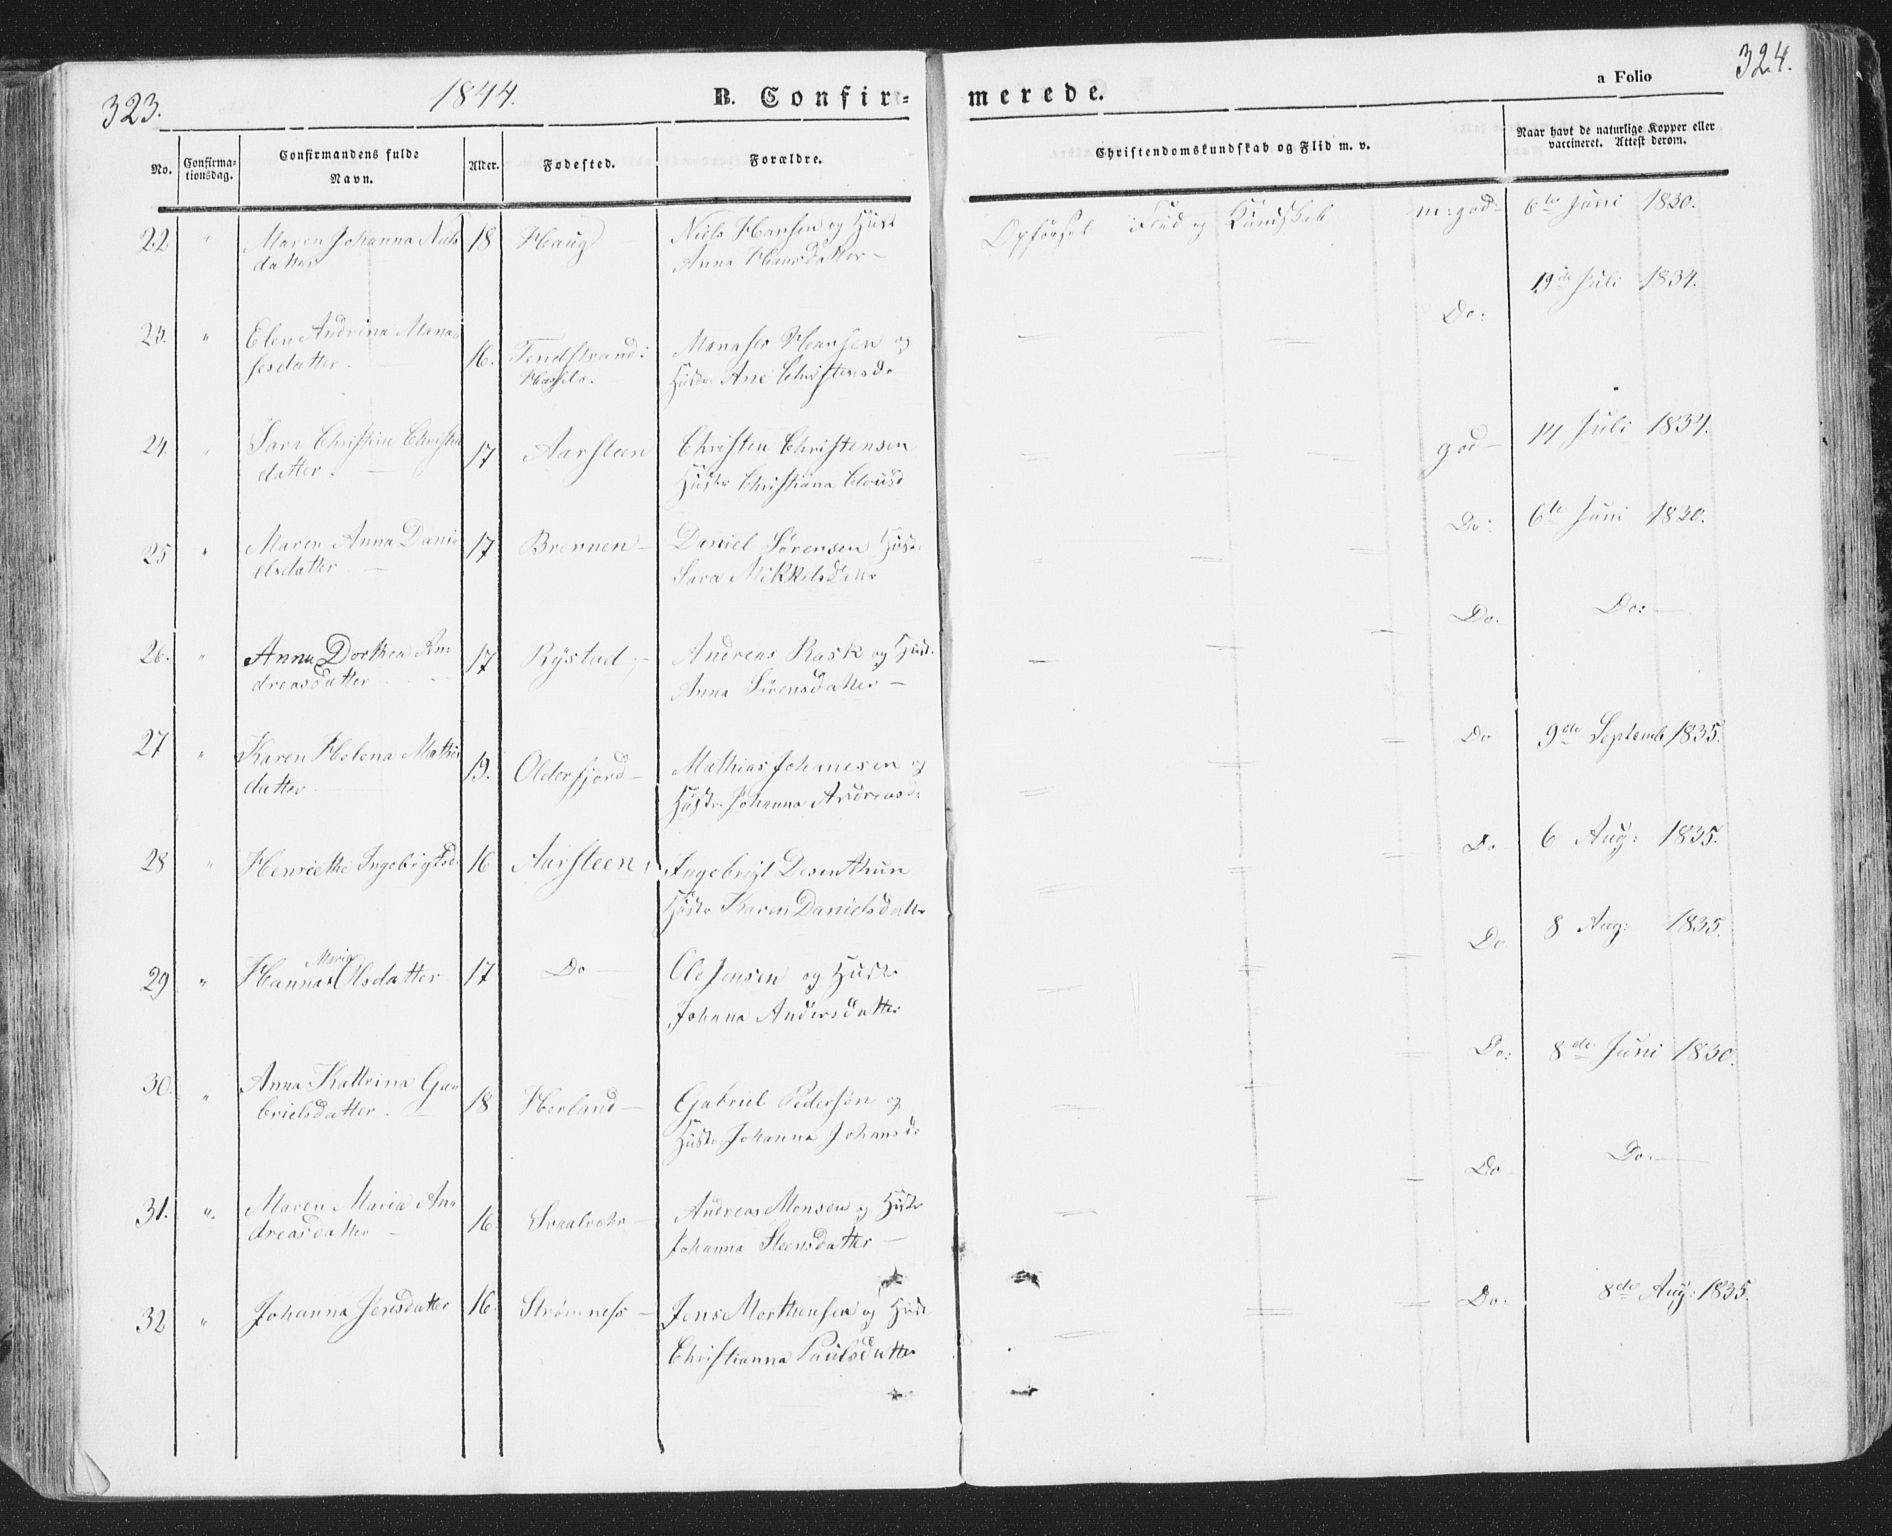 323.
1844.
B. Confir=
merede.
a Folio
324.
No.
Confirma-
tionsdag.
Confirmandens fulde
Navn.
Alder.
Fødested.
Forældre.
Christendomskundskab og Flid m. v.
Naar havt de naturlige Kopper eller
vaccineret. Attest derom.
22 " Maren Johanna Niels
datter 18 Haug – Niels Hansen og Hust
Anna Hansdatter – Opførsel Flid og Kundskab m: god– 6te Juni 1830.
23. " Elen Andrina Mana-
sesdatter. 16. Tendstrand: Manases Hansen og
Hustr Ane Christensd. Do: 19de Juli 1834.
24. " Sara Christine Christen
datter. 17 Aarsteen Christen Christensen
Hustr Christiana Clausd god – 14 Juli 1834.
25 " Maren Anna Dani-
elsdatter. 17 Brennen – Daniel Sørensen Hust.
Sara Mikkelsdatter Do: 6te Juni 1830.
26. " Anna Dorthea An-
dreasdatter 17 Rystad – Andreas Rask og Hust.
Anna Sørensdatter – Do. Do: –
27 " Karen Helena Mathis
datter 19. Olderfjord – Mathias Johanesen og
Hustr. Johanna Andreasd: Do 9de Septemb 1835.
28 " Henriethe Ingebrigtsd. 16 Aarsteen Ingebrigt Desenthun
Hustr Karen Danielsdattr Do 6 Aug: 1835.
29 " Hanna Maria Olsdatter 17 Do – Ole Jensen og Hustr
Johana Andersdatter Do 8 Aug: 1835.
30. " Anna Kattrina Ga-
brielsdatter. 18 Herland – Gabriel Pedersøn og
Hustr. Johanna Johansd. Do: 8de Juni 1830.
31. " Maren Maria An-
dreasdatter – 16 Andreas Monsen og Hustr
Johanna Steensdatter – Do Do. –
32 " Johanna Jensdatter 16. Strømness – Jens Morthensen og Hust.
Christianna Paulsdatter Do. 8de Aug: 1835.